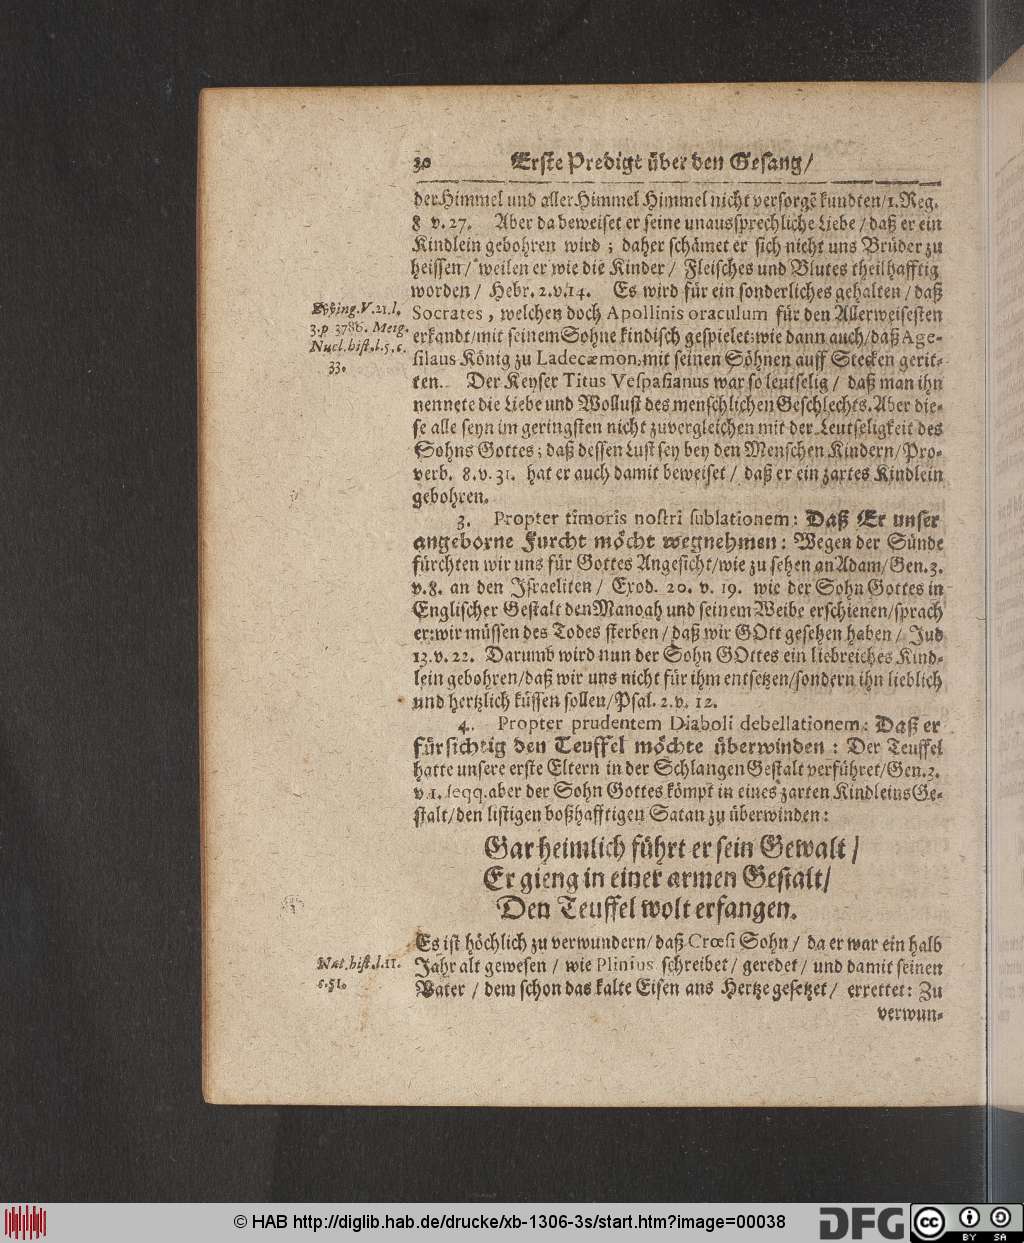 30 Erste Predigt über den Gesang/
der Himmel und aller Himmel Himmel nicht versorgē kundten/1. Reg.
8 v. 27. Aber da beweiset er seine unaussprechliche Liebe / daß er ein
Kindlein gebohren wird ; daher schämet er sich nicht uns Brüder zu
heissen/ weilen er wie die Kinder / Fleisches und Blutes theilhafftig
worden / Hebr. 2. v. 14. Es wird für ein sonderliches gehalten / daß
Socrates, welchen doch Apollinis oraculum für den Allerweisesten
erkandt/mit seinem Sohne kindisch gespielet: wie dann auch/daß Age-
silaus König zu Ladecæmon, mit seinen Söhnen auff Stecken gerit-
ten. Der Keyser Titus Vespasianus war so leutselig / daß man ihn
nennete die Liebe und Wollust des menschlichen Geschlechts. Aber die-
se alle seyn im geringsten nicht zuvergleichen mit der Leutseligkeit des
Sohns Gottes; daß dessen Lust sey bey den Menschen Kindern/Pro-
verb. 8. v. 31. hat er auch damit beweiset / daß er ein zartes Kindlein
gebohren.
3. Propter timoris nostri sublationem: Daß Er unser
angeborne Furcht möcht wegnehmen: Wegen der Sünde
fürchten wir uns für Gottes Angesicht/wie zu sehen an Adam/Gen. 3.
v. 8. an den Israeliten / Exod. 20. v. 19. wie der Sohn Gottes in
Englischer Gestalt den Manoah und seinem Weibe erschienen/sprach
er: wir müssen des Todes sterben / daß wir GOtt gesehen haben / Jud
13. v. 22. Darumb wird nun der Sohn GOttes ein liebreiches Kind-
lein gebohren/daß wir uns nicht für ihm entsetzen/sondern ihn lieblich
und hertzlich küssen sollen/Psal. 2. v. 12.
4. Propter prudentem Diaboli debellationem: Daß er
fürsichtig den Teuffel möchte überwinden : Der Teuffel
hatte unsere erste Eltern in der Schlangen Gestalt verführet/Gen. 3.
v. 1. seqq. aber der Sohn Gottes kömpt in eines zarten Kindleins Ge-
stalt/den listigen boßhafftigen Satan zu überwinden:
Gar heimlich führt er sein Gewalt /
Er gieng in einer armen Gestalt/
Den Teuffel wolt erfangen.
Es ist höchlich zu verwundern/daß Crœsi Sohn / da er war ein halb
Jahr alt gewesen / wie Plinius schreibet/ geredet / und damit seinen
Vater / dem schon das kalte Eisen ans Hertze gesetzet / errettet: Zu
verwun-
Zvving. V. 21. l.
3. p 3786. Meig.
Nucl. hist. l. 5. c.
33.
Nat. hist. l. 11.
c. 51.
© HAB http://diglib.hab.de/drucke/xb-1306-3s/start.htm?image=00038
DFG
cc BY SA